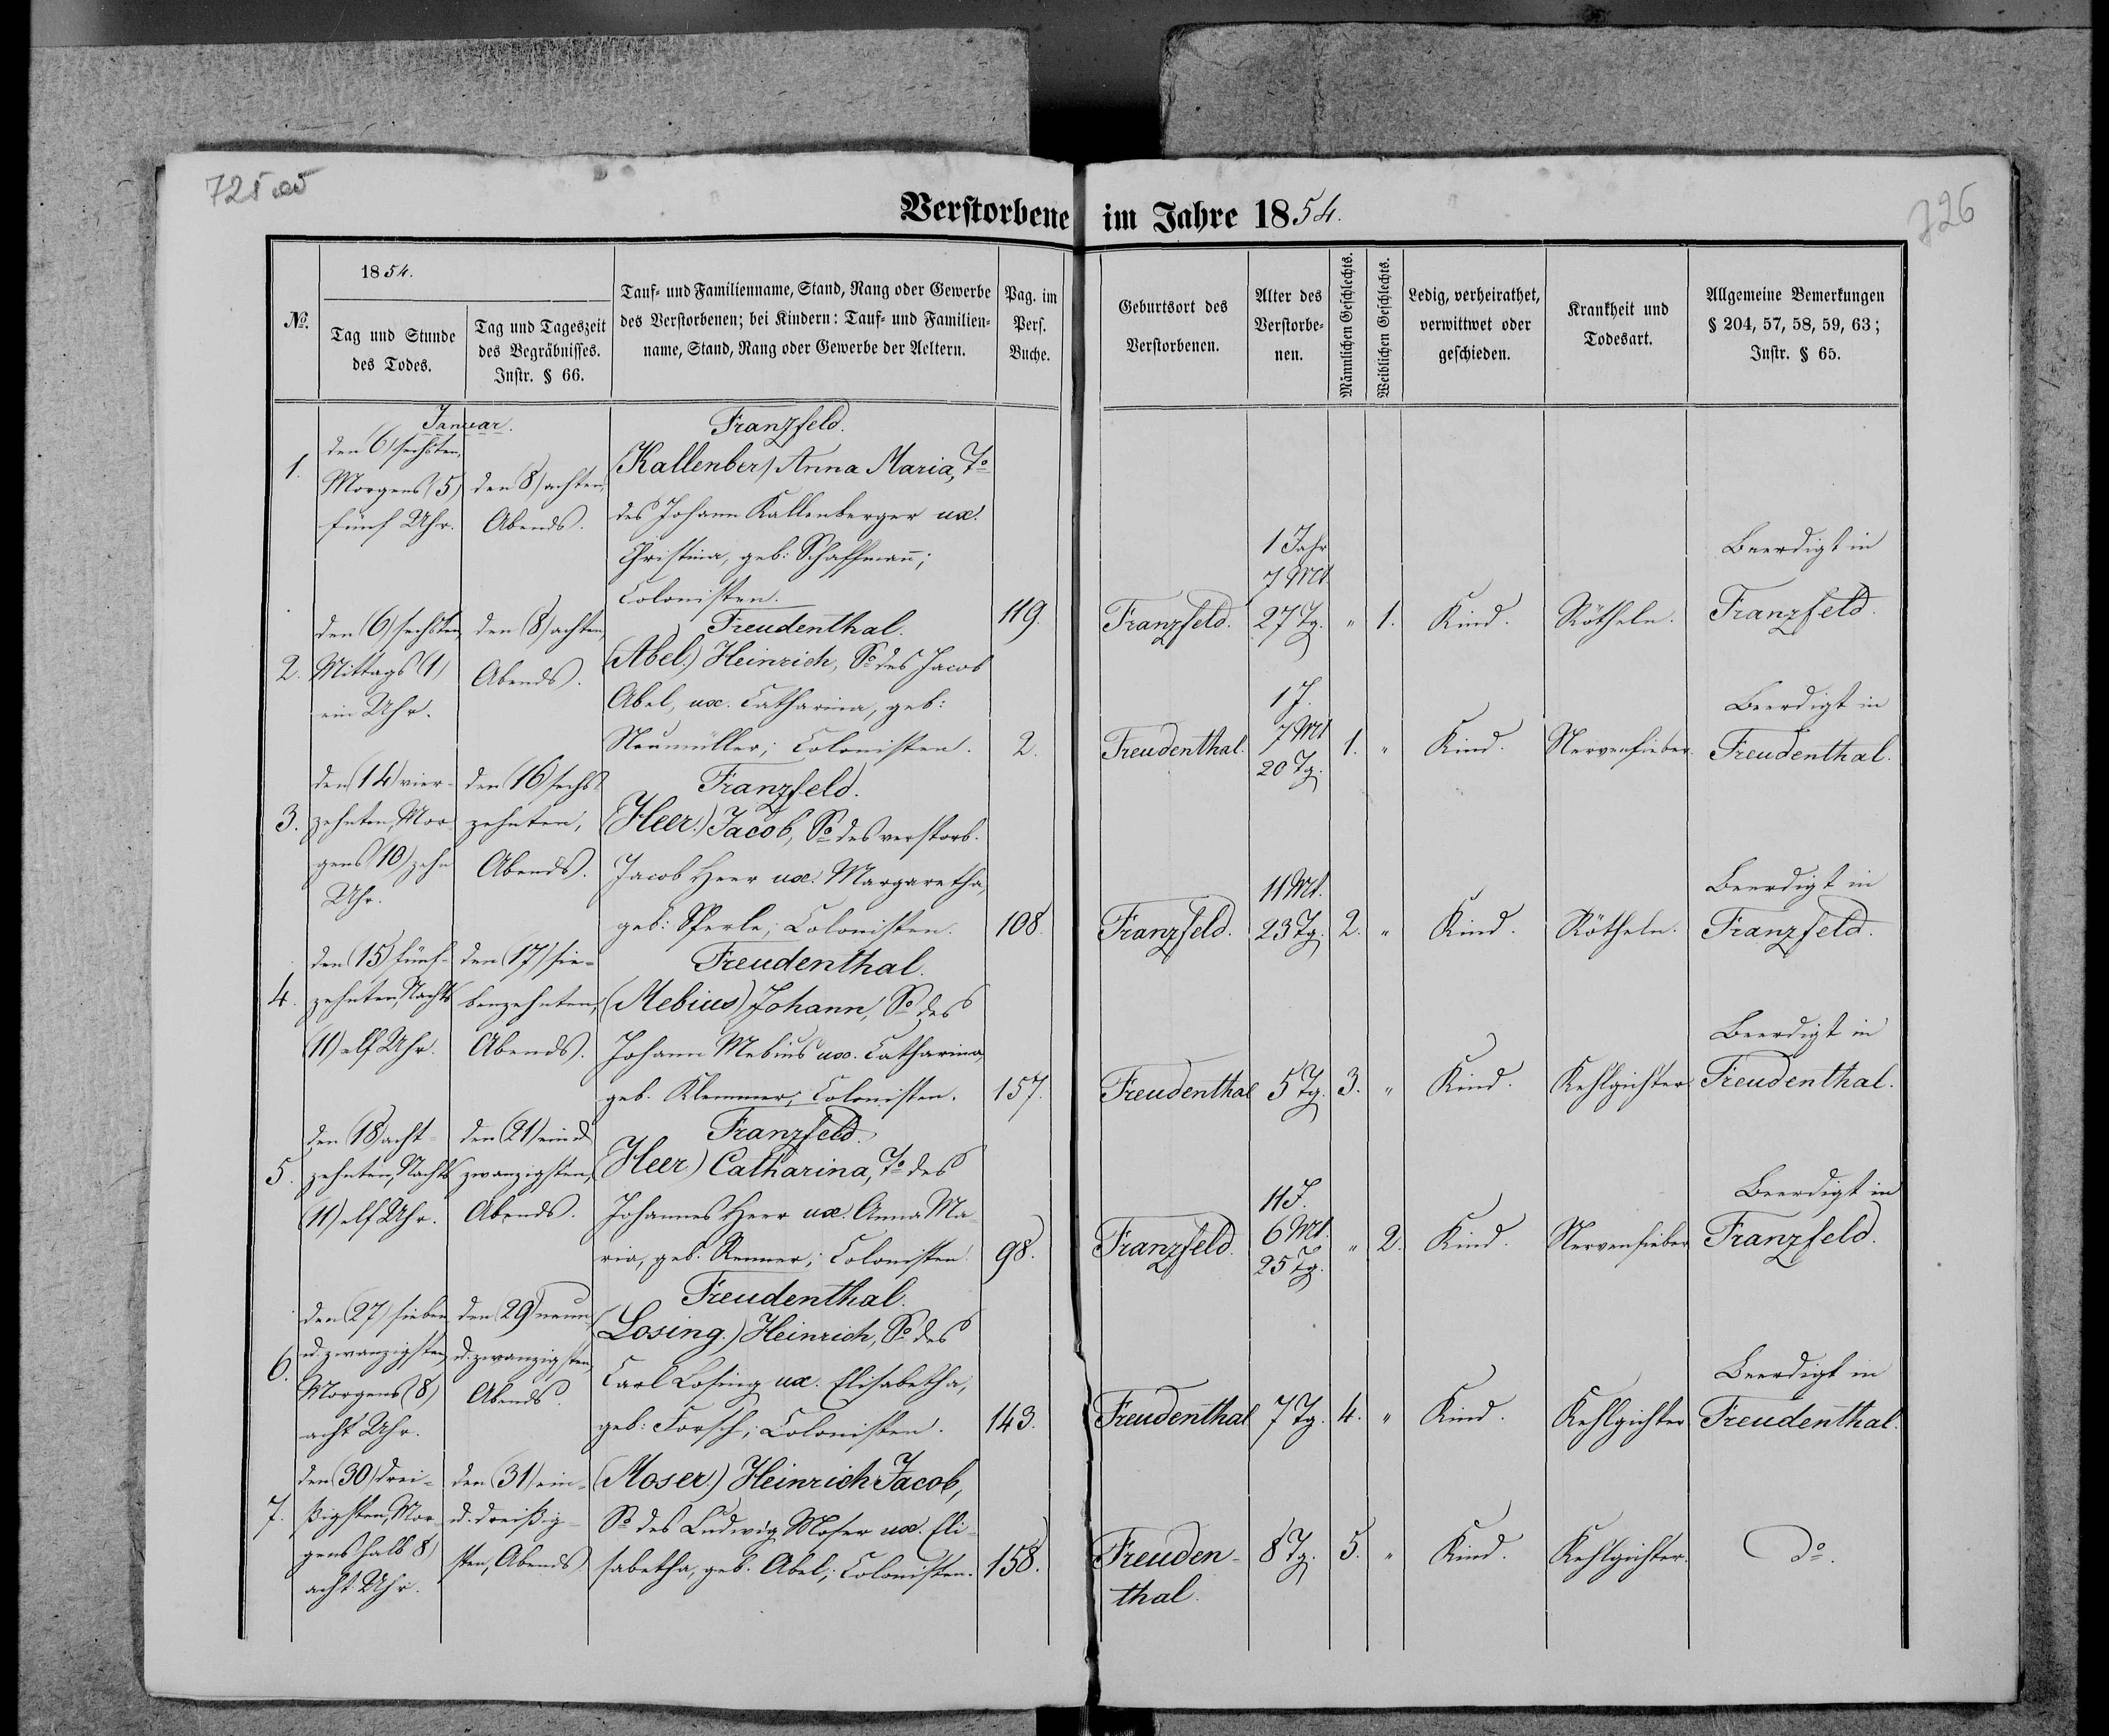 725
726
Verstorbene im Jahre 1854.
№.
1854.
Tag und Stunde
des Todes.
Tag und Tageszeit
des Begräbnisses.
Instr. § 66.
Tauf- und Familienname, Stand, Rang oder Gewerbe
des Verstorbenen; bei Kindern: Tauf- und Familien-
name, Stand, Rang oder Gewerbe der Aeltern.
Pag. im
Pers.
Buche.
Geburtsort des
Verstorbenen.
Alter des
Verstorbe-
nen.
Männlichen Geschlechts.
Weiblichen Geschlechts.
Ledig, verheirathet,
verwittwet oder
geschieden.
Krankheit und
Todesart.
Allgemeine Bemerkungen
§ 204, 57, 58, 59, 63;
Instr. § 65.
Januar.
1.
den 6) sechsten,
Morgens (5)
fünf Uhr.
den 8) achten,
Abends.
Franzfeld.
(Kallenber) Anna Maria, To
des Johann Kallenberger ux.
Christina, geb: Schaffmañ;
Colonisten.
119.
Franzfeld.
1 Jahr
7 Mt
27 Tg.
" 1.
Kind.
Rötheln.
Beerdigt in
Franzfeld.
2.
den (6) sechsten
Mittags (1)
ein Uhr.
den (8) achten,
Abends.
Freudenthal.
(Abel.) Heinrich, So des Jacob
Abel, ux. Catharina, geb:
Neumüller; Colonisten.
2.
Freudenthal.
1 J.
7 Mt
20 Tg.
1. "
Kind.
Nervenfieber.
Beerdigt in
Freudenthal.
3.
den (14) vier-
zehnten, Mor-
gens (10) zehn
Uhr.
den (16) sechs
zehnten,
Abends.
Franzfeld.
(Heer.) Jacob, So des verstorb.
Jacob Heer ux. Margaretha,
geb: Sperle; Colonisten.
108.
Franzfeld.
11 Mt.
23 Tg.
2. "
Kind.
Rötheln.
Beerdigt in
Franzfeld.
4.
den (15) fünf-
zehnten, Nachts
(11) elf Uhr.
den (17) sie-
benzehnten,
Abends.
Freudenthal.
(Mebius) Johann, So des
Johann Mebius ux. Catharina
geb. Klemmer; Colonisten.
157.
Freudenthal
5 Tg.
3. "
Kind.
Kehlgichter.
Beerdigt in
Freudenthal.
5.
den (18) acht-
zehnten, Nachts
(11) elf Uhr.
den (21) ein d
zwanzigsten,
Abends.
Franzfeld.
(Heer) Catharina, To des
Johannes Heer ux. Anna Ma-
ria, geb. Renner; Colonisten.
98.
Franzfeld.
11 J.
6 Mt.
25 Tg.
" 2.
Kind.
Nervenfieber
Beerdigt in
Franzfeld.
6.
den (27) sieben
u. zwanzigsten,
Morgens (8)
acht Uhr.
den (29) neun
u. zwanzigsten,
Abends.
Freudenthal.
(Losing.) Heinrich, So des
Carl Losing ux. Elisabetha,
geb: Forsch; Colonisten.
143.
Freudenthal
7 Tg.
4. "
Kind.
Kehlgichter
Beerdigt in
Freudenthal.
7.
den (30) drei-
ßigsten, Mor-
gens halb 8)
acht Uhr.
den (31) ein-
u. dreißig-
sten, Abends
(Moser.) Heinrich Jacob,
So des Ludwig Moser ux. Eli-
sabetha, geb. Abel; Colonisten.
158.
Freuden-
thal.
8 Tg.
5. "
Kind.
Kehlgichter.
do.